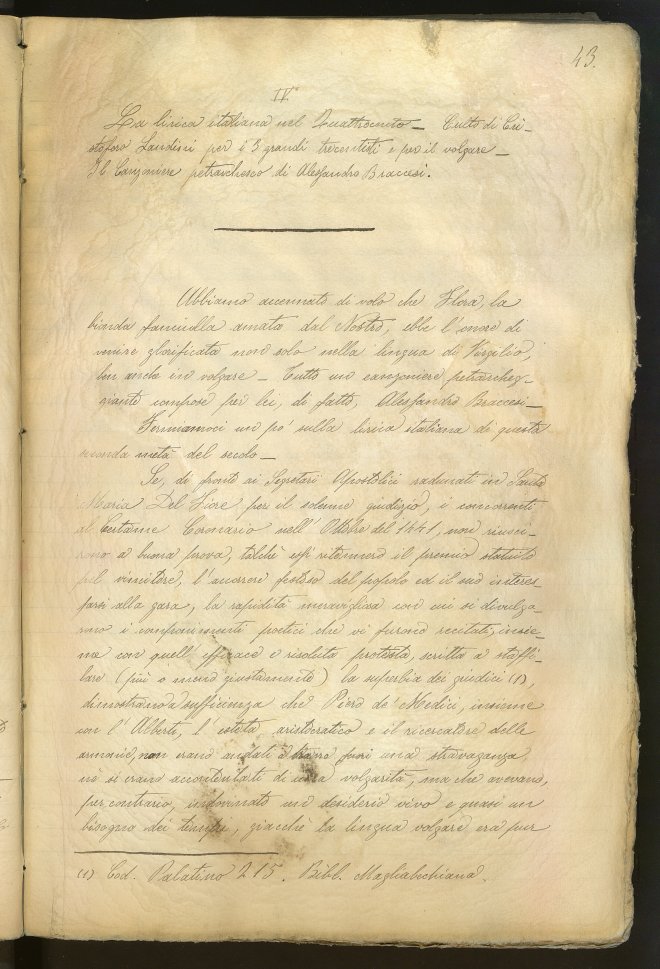 43.
IV
La lirica italiana nel Quattrocento – Culto di Cri-
stoforo Landini per i 3 grandi trecentisti e per il volgare –
Il Canzoniere petrarchesco di Alessandro Braccesi.
Abbiamo accennato di volo che Flora, la
bionda fanciulla amata dal Nostro, ebbe l'onore di
venire glorificata non solo nella lingua di Virgilio,
ben anche in volgare – Tutto un canzoniere petrarcheg-
giante compose per lei, di fatto, Alessandro Braccesi –
Fermiamoci un po' sulla lirica italiana di questa
seconda metà del secolo –
Se, di fronte ai Segretari Apostolici radunati in Santa
Maria Del Fiore per il solenne giudizio, i concorrenti
al Certame Coronario nell'Ottobre del 1441, non riusci-
rono a buona prova, talchè essi ritennero il premio statuito
pel vincitore, l'accorrere festoso del popolo ed il suo interes-
sarsi alla gara, la rapidità meravigliosa con cui si divulga-
rono i componimenti poetici che vi furono recitati, insie-
me con quell'efficace e risoluta protesta, scritta a staffi-
lare (più o meno giustamente) la superbia dei giudici (1),
dimostrano a sufficienza che Piero de' Medici, insieme
con l'Alberti, l'esteta aristocratico e il ricercatore delle
armonie, non erano andati a trarre fuori una stravaganza
nè si erano accontentati di una volgarità, ma che avevano,
per contrario, indovinato un desiderio vivo e quasi un
bisogno dei tempi, giacchè la lingua volgare era pur
(1) Cod. Palatino 215. Bibl. Magliabechiana.